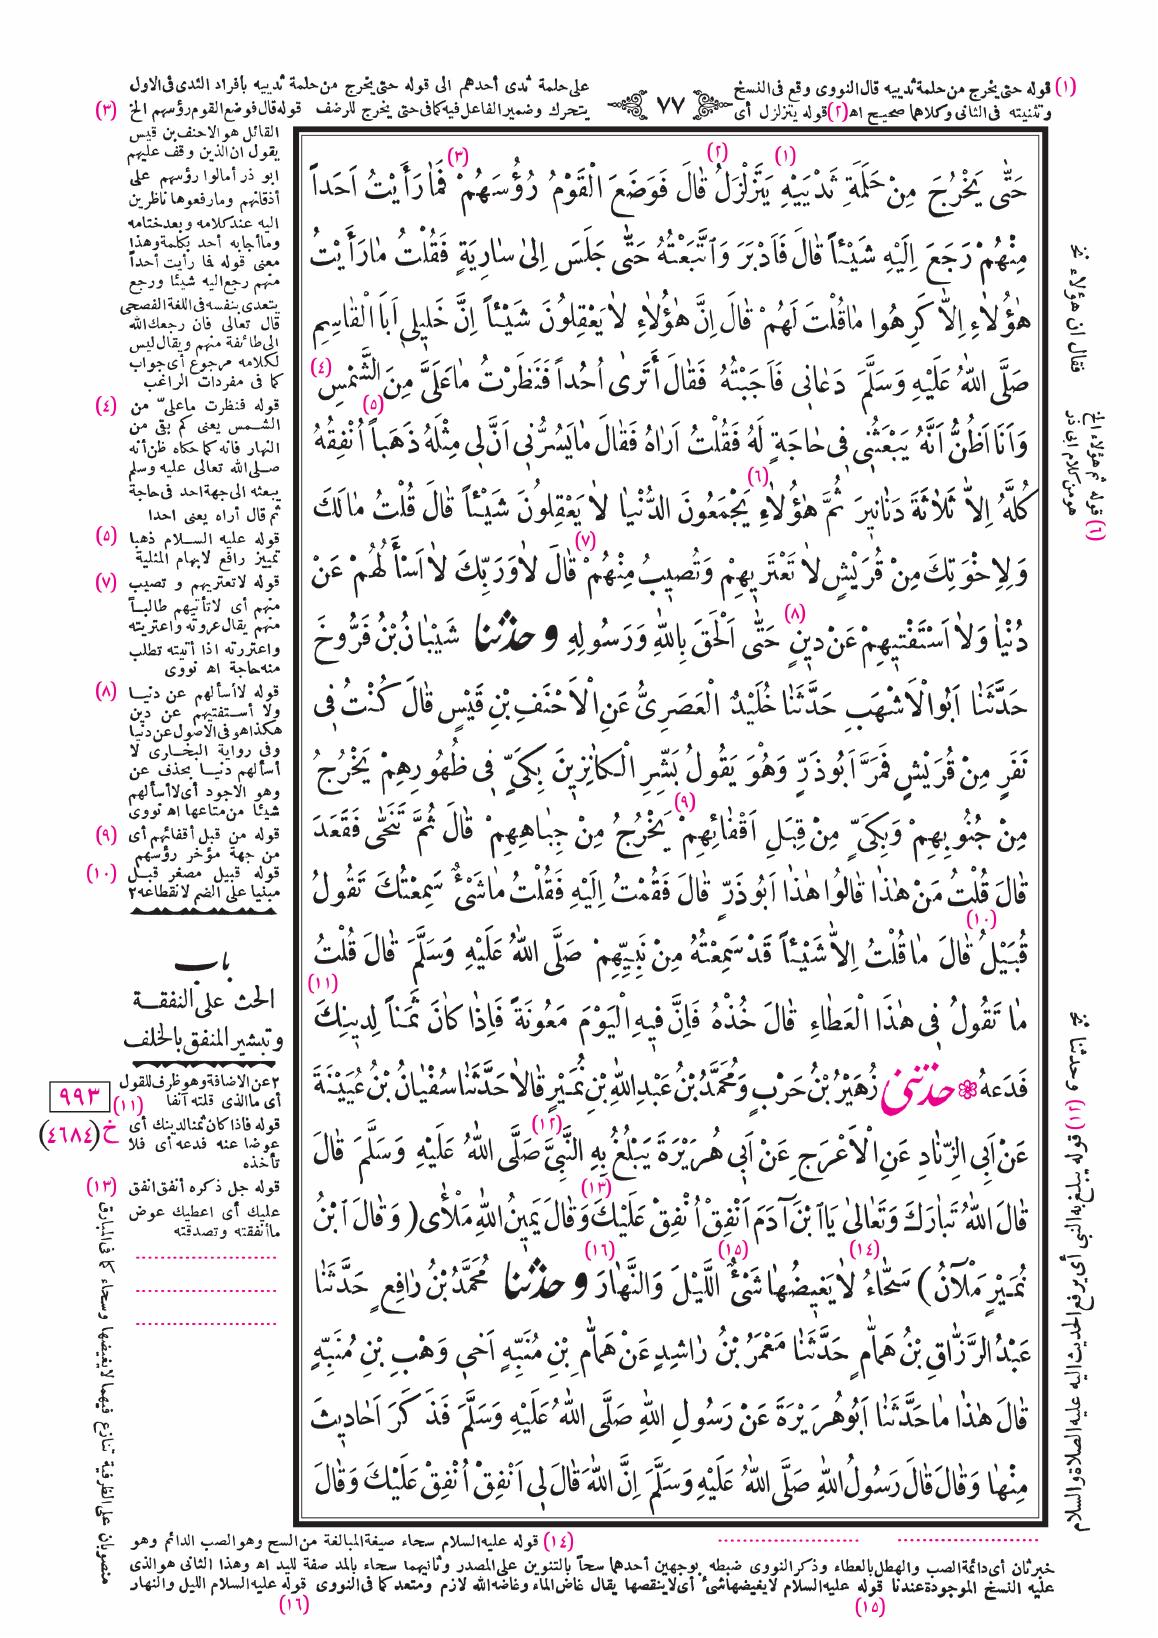 (١) قوله حتى يخرج من حلمة ثدييه قال النووى وقع فى النسخ
وتثنيته فى الثانى وكلاهما صحيح اه (٢) قوله يتزلزل أى
٧٧
على حلمة ثدى أحدهم الى قوله حتى يخرج من حلمة ثدييه بأفراد الثدى فى الاول
يتحرك وضمير الفاعل فيه كما فى حتى يخرج للرضف قوله قال فوضع القوم رؤسهم الخ (٣)
حَتّٰى يَخْرُجَ مِنْ حَلَمَةِ ثَدْيَيْهِ (١) يَتَزَلْزَلُ (٢) قٰالَ فَوَضَعَ الْقَوْمُ رُؤُسَهُمْ (٣) فَمٰا رَأَيْتُ اَحَداً
مِنْهُمْ رَجَعَ اِلَيْهِ شَيْئاً قٰالَ فَاَدْبَرَ وَاتَّبَعْتُهُ حَتّٰى جَلَسَ اِلىٰ سٰارِيَةٍ فَقُلْتُ مٰا رَأَيْتُ
هٰؤُلاٰءِ اِلاّٰ كَرِهُوا مٰا قُلْتَ لَهُمْ قٰالَ اِنَّ هٰؤُلاٰءِ لاٰ يَعْقِلُونَ شَيْئاً اِنَّ خَلِيلِى اَبَا الْقٰاسِمِ
صَلَّى اللهُ عَلَيْهِ وَسَلَّمَ دَعٰانِى فَاَجَبْتُهُ فَقٰالَ أَتَرىٰ اُحُداً فَنَظَرْتُ مٰا عَلَىَّ مِنَ الشَّمْسِ (٤)
وَاَنَا اَظُنُّ اَنَّهُ يَبْعَثُنِى فِى حٰاجَةٍ لَهُ فَقُلْتُ اَرٰاهُ فَقٰالَ مٰا يَسُرُّنِى اَنَّ لِى مِثْلَهُ ذَهَباً (٥) اُنْفِقُهُ
كُلَّهُ اِلاّٰ ثَلاٰثَةَ دَنٰانِيرَ ثُمَّ هٰؤُلاٰءِ (٦) يَجْمَعُونَ الدُّنْيٰا لاٰ يَعْقِلُونَ شَيْئاً قٰالَ قُلْتُ مٰا لَكَ
وَلِاِخْوَتِكَ مِنْ قُرَيْشٍ لاٰ تَعْتَرِيهِمْ وَتُصِيبُ مِنْهُمْ (٧) قٰالَ لاٰ وَرَبِّكَ لاٰ اَسْأَلُهُمْ عَنْ
دُنْيٰا وَلاٰ اَسْتَفْتِيهِمْ عَنْ دِينٍ (٨) حَتّٰى اَلْحَقَ بِاللهِ وَرَسُولِهِ و حدثنا شَيْبٰانُ بْنُ فَرُّوخَ
حَدَّثَنٰا اَبُو الْاَشْهَبِ حَدَّثَنٰا خُلَيْدٌ الْعَصَرِىُّ عَنِ الْاَحْنَفِ بْنِ قَيْسٍ قٰالَ كُنْتُ فِى
نَفَرٍ مِنْ قُرَيْشٍ فَمَرَّ اَبُو ذَرٍّ وَهُوَ يَقُولُ بَشِّرِ الْكٰانِزِينَ بِكَىٍّ فِى ظُهُورِهِمْ يَخْرُجُ
مِنْ جُنُوبِهِمْ وَبِكَىٍّ مِنْ قِبَلِ اَقْفٰائِهِمْ (٩) يَخْرُجُ مِنْ جِبٰاهِهِمْ قٰالَ ثُمَّ تَنَحّٰى فَقَعَدَ
قٰالَ قُلْتُ مَنْ هٰذٰا قٰالُوا هٰذٰا اَبُو ذَرٍّ قٰالَ فَقُمْتُ اِلَيْهِ فَقُلْتُ مٰا شَىْءٌ سَمِعْتُكَ تَقُولُ
قُبَيْلُ (١٠) قٰالَ مٰا قُلْتُ اِلاّٰ شَيْئاً قَدْ سَمِعْتُهُ مِنْ نَبِيِّهِمْ صَلَّى اللهُ عَلَيْهِ وَسَلَّمَ قٰالَ قُلْتُ
مٰا تَقُولُ فِى هٰذَا الْعَطٰاءِ قٰالَ خُذْهُ فَاِنَّ فِيهِ الْيَوْمَ مَعُونَةً فَاِذٰا كٰانَ ثَمَناً لِدِينِكَ (١١)
فَدَعْهُ حدثنى زُهَيْرُ بْنُ حَرْبٍ وَمُحَمَّدُ بْنُ عَبْدِ اللهِ بْنِ نُمَيْرٍ قٰالاٰ حَدَّثَنٰا سُفْيٰانُ بْنُ عُيَيْنَةَ
عَنْ اَبِى الزِّنٰادِ عَنِ الْاَعْرَجِ عَنْ اَبِى هُرَيْرَةَ يَبْلُغُ بِهِ النَّبِىَّ (١٢) صَلَّى اللهُ عَلَيْهِ وَسَلَّمَ قٰالَ
قٰالَ اللهُ تَبٰارَكَ وَتَعٰالىٰ يَا ابْنَ آدَمَ اَنْفِقْ اُنْفِقْ عَلَيْكَ (١٣) وَقٰالَ يَمِينُ اللهِ مَلْأٰى ( وَقٰالَ ابْنُ
نُمَيْرٍ مَلْآنُ ) سَحّٰاءُ (١٤) لاٰ يَغِيضُهٰا شَىْءٌ (١٥) اللَّيْلَ وَالنَّهٰارَ (١٦) و حدثنا مُحَمَّدُ بْنُ رٰافِعٍ حَدَّثَنٰا
عَبْدُ الرَّزّٰاقِ بْنُ هَمّٰامٍ حَدَّثَنٰا مَعْمَرُ بْنُ رٰاشِدٍ عَنْ هَمّٰامِ بْنِ مُنَبِّهٍ اَخِى وَهْبِ بْنِ مُنَبِّهٍ
قٰالَ هٰذٰا مٰا حَدَّثَنٰا اَبُو هُرَيْرَةَ عَنْ رَسُولِ اللهِ صَلَّى اللهُ عَلَيْهِ وَسَلَّمَ فَذَكَرَ اَحٰادِيثَ
مِنْهٰا وَقٰالَ قٰالَ رَسُولُ اللهِ صَلَّى اللهُ عَلَيْهِ وَسَلَّمَ اِنَّ اللهَ قٰالَ لِى اَنْفِقْ اُنْفِقْ عَلَيْكَ وَقٰالَ
القائل هو الاحنف بن قيس
يقول ان الذين وقف عليهم
ابو ذر أمالوا رؤسهم على
أذقانهم وما رفعوها ناظرين
اليه عند كلامه وبعد ختامه
وما أجابه أحد بكلمة وهذا
معنى قوله فما رأيت أحداً
منهم رجع اليه شيئا ورجع
يتعدى بنفسه فى اللغة الفصحى
قال تعالى فان رجعك الله
الى طائفة منهم ويقال ليس
لكلامه مرجوع أى جواب
كما فى مفردات الراغب
قوله فنظرت ما علىّ من (٤)
الشمس يعنى كم بقى من
النهار فانه كما حكاه ظن أنه
صلى الله تعالى عليه وسلم
يبعثه الى جهة احد فى حاجة
ثم قال أراه يعنى احدا
قوله عليه السلام ذهبا (٥)
تمييز رافع لابهام المثلية
قوله لا تعتريهم و تصيب (٧)
منهم أى لا تأتيهم طالباً
منهم يقال عروته واعتريته
واعتررته اذا أتيته تطلب
منه حاجة اه نووى
قوله لا أسألهم عن دنيا (٨)
ولا أستفتيهم عن دين
هكذا هو فى الاصول عن دنيا
وفى رواية البخارى لا
أسألهم دنيا بحذف عن
وهو الاجود أى لا أسألهم
شيئا من متاعها اه نووى
قوله من قبل أقفائهم أى (٩)
من جهة مؤخر رؤسهم
قوله قبيل مصغر قبل (١٠)
مبنيا على الضم لانقطاعه ٢
باب
الحث على النفقة
وتبشير المنفق بالخلف
٢ عن الاضافة وهو ظرف للقول
أى ما الذى قلته آنفا
٩٩٣
خ (٤٦٨٤)
(١١) قوله فاذا كان ثمنا لدينك أى
عوضا عنه فدعه أى فلا
تأخذه
قوله جل ذكره أنفق انفق (١٣)
عليك أى اعطيك عوض
ما أنفقته وتصدقته
فقال ان هؤلاء نخ
(٦) قوله ثم هؤلاء الخ
هو من كلام ابى ذر
وحدثنا نخ
(١٢) قوله يبلغ به النبى أى يرفع الحديث اليه عليه الصلاة والسلام
(١٤) قوله عليه السلام سحاء صيغة المبالغة من السح وهو الصب الدائم وهو
خبر ثان أى دائمة الصب والهطل بالعطاء وذكر النووى ضبطه بوجهين أحدها سحاً بالتنوين على المصدر وثانيهما سحاء بالمد صفة لليد اه وهذا الثانى هو الذى
عليه النسخ الموجودة عندنا قوله عليه السلام لا يغيضها شىء أى لا ينقصها يقال غاض الماء وغاضه الله لازم ومتعد كما فى النووى قوله عليه السلام الليل والنهار
(١٥) (١٦)
منصوبان على الظرفية تنازع فيهما لا يغيضها وسحاء كما فى المبارق